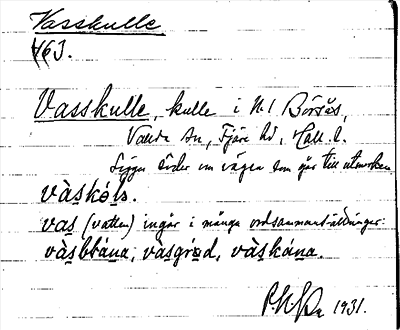 Vasskulle
463.
Vasskulle, kulle i N:1 Börsås,
Valda sn, Fjäre hd, Hall. l.
Ligger söder om vägen som går till utmarken.
vàskóls.
vas (vatten) ingår i många ordsammansättningar:
vàsbbána, vàsgrɵd, vàskána.
1931.